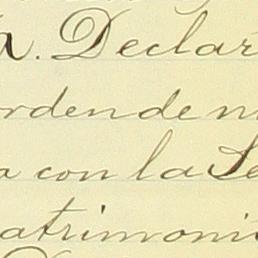 a. Declar
rden de n
a con la Se
atrimoni